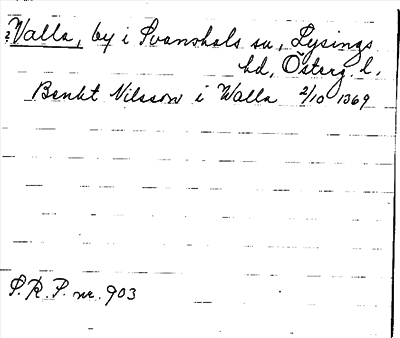 Valla, by i Svanshals sn, Lysings
hd, Österg. l.
Benkt Nilsson i Walla 2/10 1369
S.R.P. nr. 903